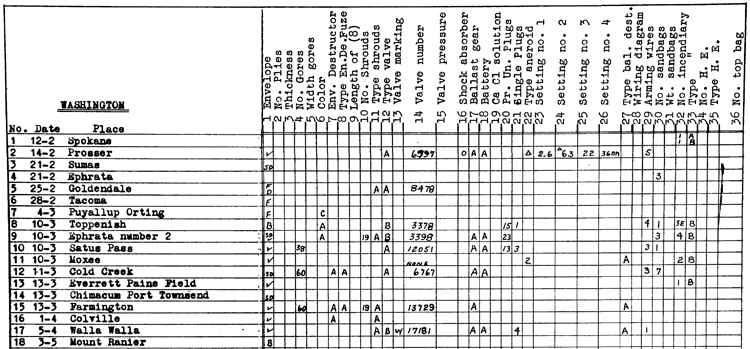 WASHINGTON
1 Envelope
2 No. Plies
3 Thickness
4 No. Gores
5 Width gores
6 Color
7 Env. Destructor
8 Type En.De.Fuze
9 Length of (8)
10 No. Shrouds
11 Type shrouds
12 Type valve
13 Valve marking
14 Valve number
15 Valve pressure
16 Shock absorber
17 Ballast gear
18 Battery
19 Ca Cl solution
20 Pr. Un. Plugs
21 Single Plugs
22 Type aneroid
23 Setting no. 1
24 Setting no. 2
25 Setting no. 3
26 Setting no. 4
27 Type bal. dest.
28 Wiring diagram
29 Arming wires
30 No. sandbags
31 Wt. sandbags
32 No. incendiary
33 Type "
34 No. H. E.
35 Type H. E.
36 No. top bag
No. Date Place
1 12-2 Spokane 1 1 A B
2 14-2 Prosser ✓ A 6997 O A A A 2.6 63 22 36mm 5
3 21-2 Sumas SD
4 21-2 Ephrata 3
5 25-2 Goldendale F D A A 8478
6 28-2 Tacoma F
7 4-3 Puyallup Orting F C
8 10-3 Toppenish B A B 3378 15 1 4 1 3E B
9 10-3 Ephrata number 2 SD A 19 A B 3398 A A 23 3 4 B
10 10-3 Satus Pass ✓ 38 A 12051 A A 13 3 3 1
11 10-3 Moxee ✓ NONE 2 A 2 B
12 11-3 Cold Creek SD 60 A A A 6767 A A 3 7
13 13-3 Everrett Paine Field ✓ 1 B
14 13-3 Chimacum Port Townsend SD
15 13-3 Farmington ✓ 60 A A 19 A 13729 A A
16 1-4 Colville ✓ A A
17 5-4 Walla Walla ✓ A B W 17181 A A 4 A 1
18 3-5 Mount Ranier B